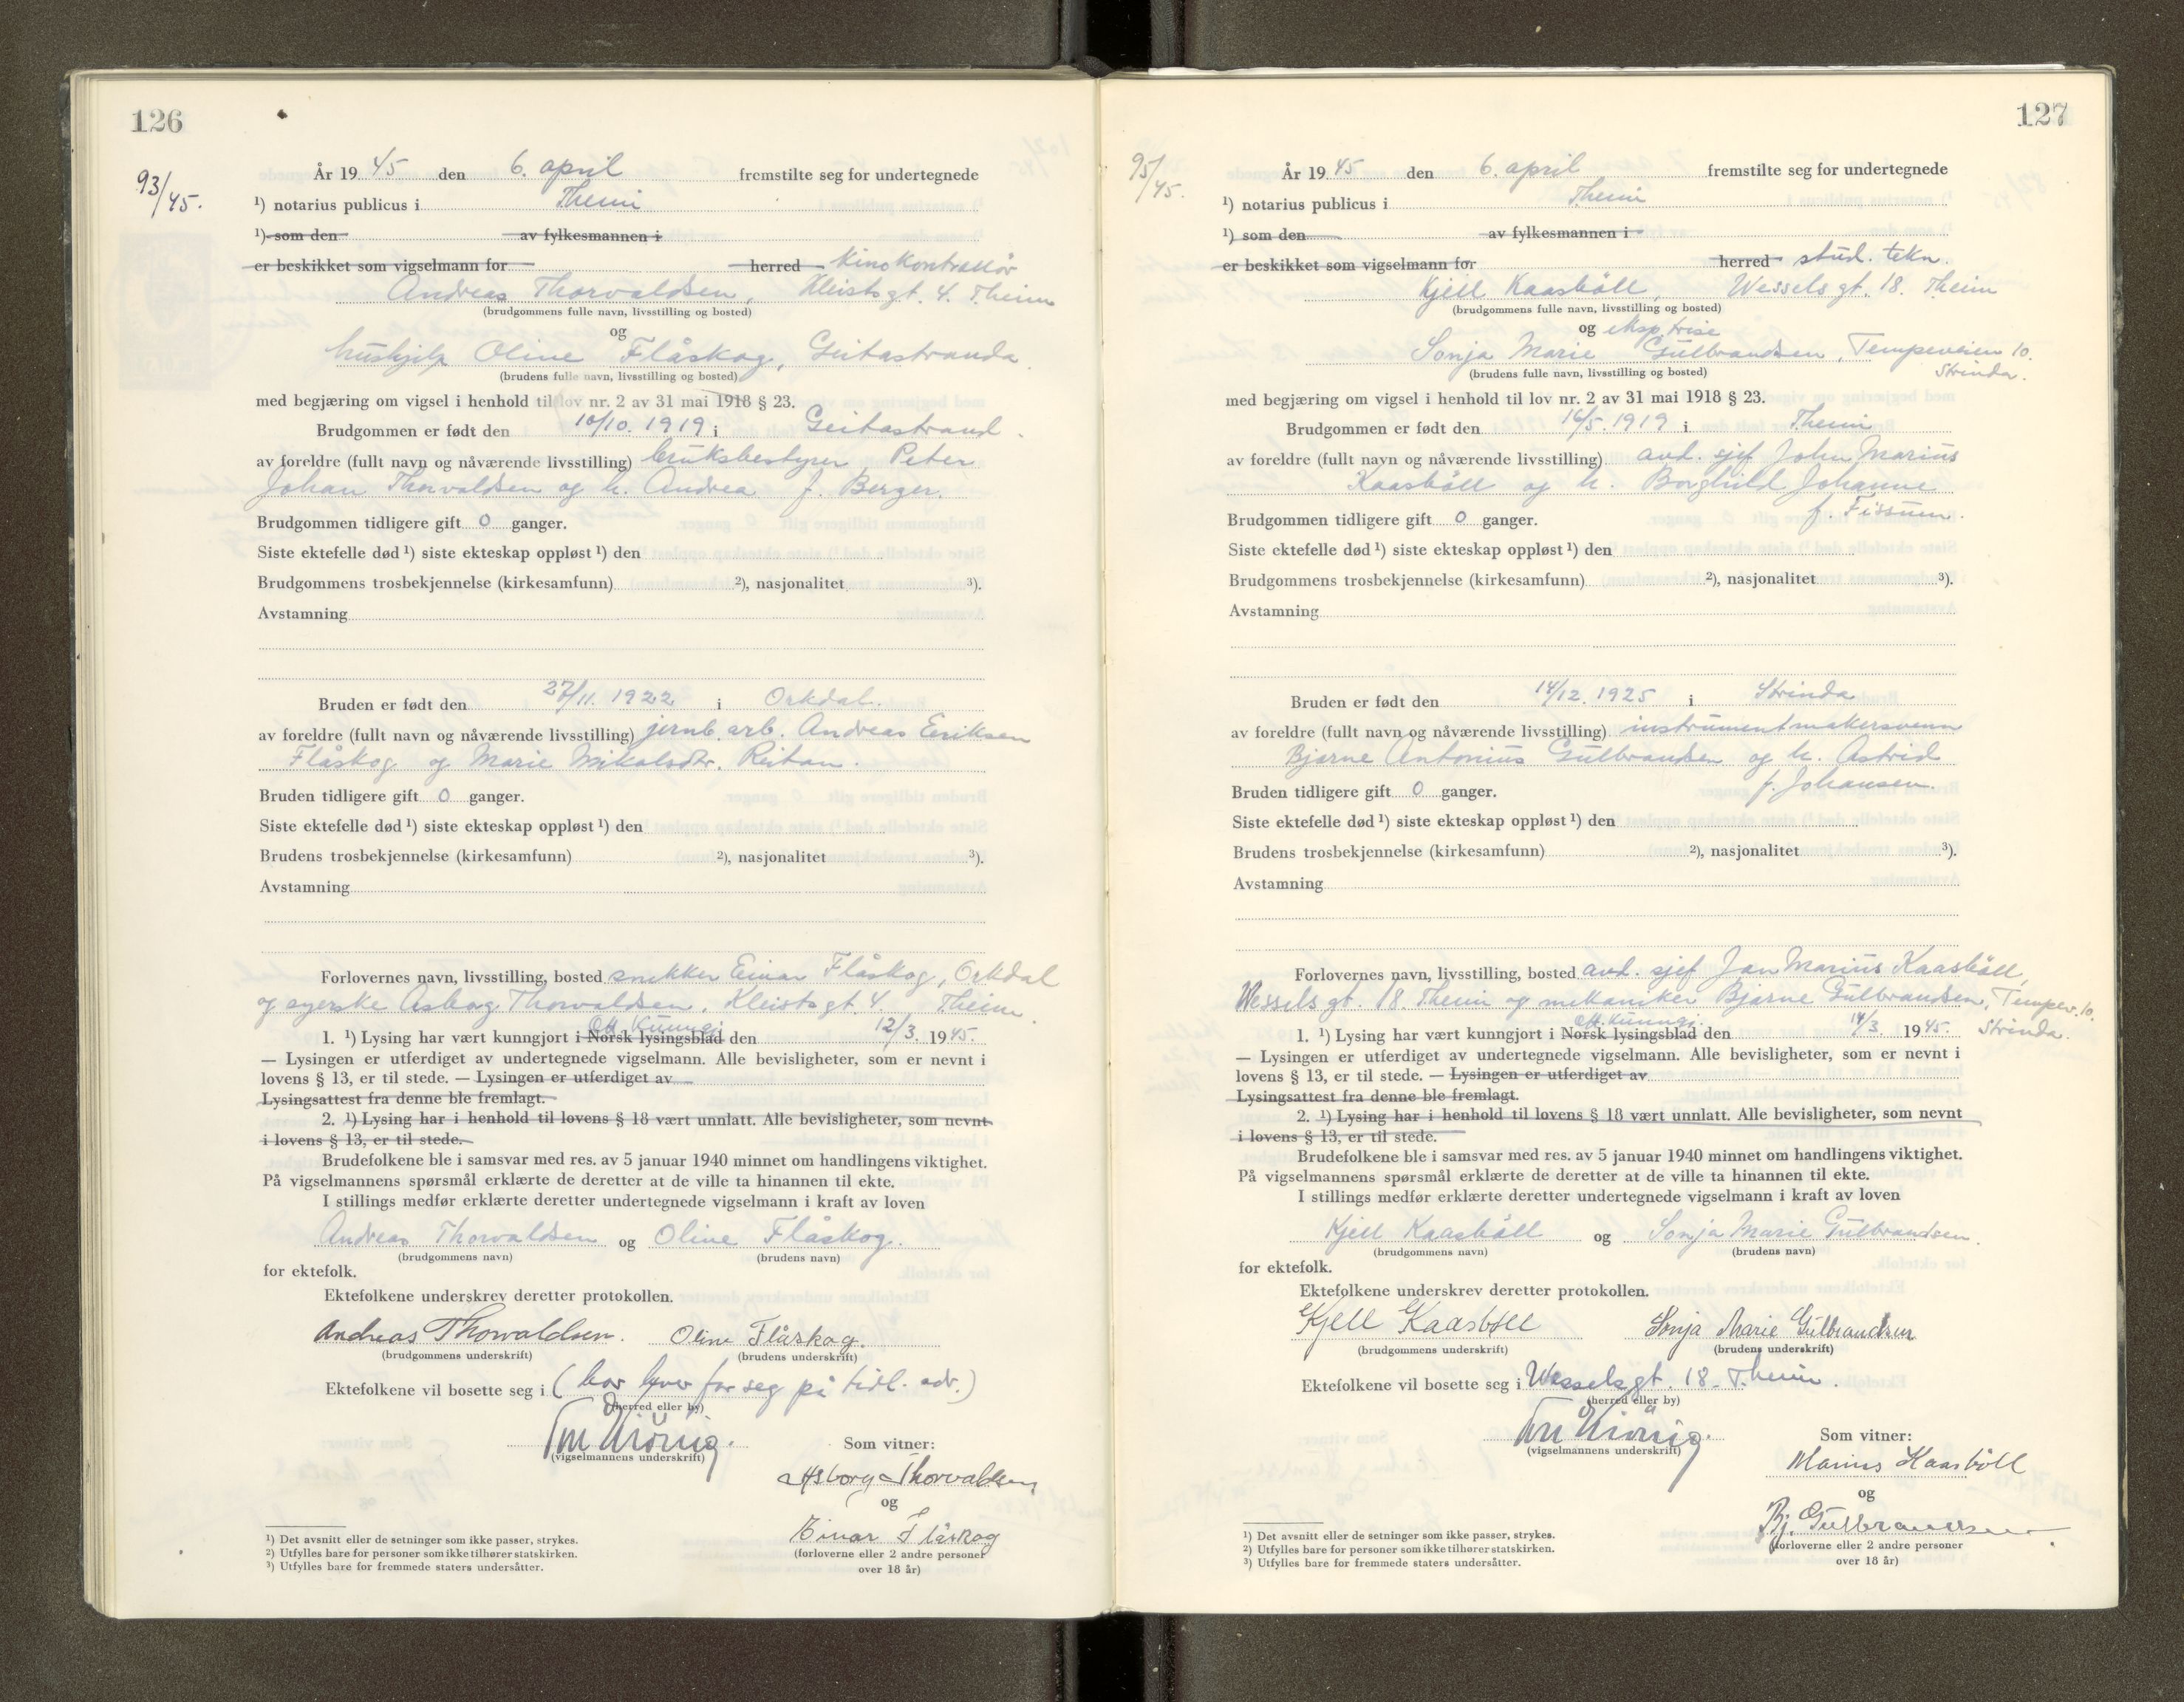 126
93/45.
År 19 45 den 6. april fremstilte seg for undertegnede
¹) notarius publicus i Theim
¹) som den av fylkesmannen i
er beskikket som vigselmann for herred kinokontrollør
Andreas Thorvaldsen, Kleistsgt. 4. Theim
(brudgommens fulle navn, livsstilling og bosted)
og
hushjelp Oline Flåskog, Geitastranda
(brudens fulle navn, livsstilling og bosted)
med begjæring om vigsel i henhold til lov nr. 2 av 31 mai 1918 § 23.
Brudgommen er født den 10/10. 1919 i Geitastrand.
av foreldre (fullt navn og nåværende livsstilling) bruksbestyrer Peter
Johan Thorvaldsen og h. Andrea f. Berger.
Brudgommen tidligere gift 0 ganger.
Siste ektefelle død ¹) siste ekteskap oppløst ¹) den
Brudgommens trosbekjennelse (kirkesamfunn) ²), nasjonalitet ³).
Avstamning
Bruden er født den 27/11. 1922 i Orkdal.
av foreldre (fullt navn og nåværende livsstilling) jernb. arb. Andreas Eriksen
Flåskog og Marie Mikalsdtr. Reitan.
Bruden tidligere gift 0 ganger.
Siste ektefelle død ¹) siste ekteskap oppløst ¹) den
Brudens trosbekjennelse (kirkesamfunn) ²), nasjonalitet ³).
Avstamning
Forlovernes navn, livsstilling, bosted snekker Einar Flåskog, Orkdal
og syerske Asborg Thorvaldsen, Kleistsgt. 4. Theim.
Off. Kunngj.
1. ¹) Lysing har vært kunngjort i Norsk lysingsblad den 12/3. 1945.
— Lysingen er utferdiget av undertegnede vigselmann. Alle bevisligheter, som er nevnt i
lovens § 13, er til stede. — Lysingen er utferdiget av
Lysingsattest fra denne ble fremlagt.
2. ¹) Lysing har i henhold til lovens § 18 vært unnlatt. Alle bevisligheter, som nevnt
i lovens § 13, er til stede.
Brudefolkene ble i samsvar med res. av 5 januar 1940 minnet om handlingens viktighet.
På vigselmannens spørsmål erklærte de deretter at de ville ta hinannen til ekte.
I stillings medfør erklærte deretter undertegnede vigselmann i kraft av loven
Andreas Thorvaldsen og Oline Flåskog.
(brudgommens navn) (brudens navn)
for ektefolk.
Ektefolkene underskrev deretter protokollen.
Andreas Thorvaldsen. Oline Flåskog.
(brudgommens underskrift) (brudens underskrift)
Ektefolkene vil bosette seg i (bor hver for seg på tidl. adr.)
(herred eller by)
(vigselmannens underskrift)
Som vitner:
Asborg Thorvaldsen
og
Einar Flåskog
(forloverne eller 2 andre personer
over 18 år)
¹) Det avsnitt eller de setninger som ikke passer, strykes.
²) Utfylles bare for personer som ikke tilhører statskirken.
³) Utfylles bare for fremmede staters undersåtter.
127
95/45.
År 19 45 den 6. april fremstilte seg for undertegnede
¹) notarius publicus i Theim
¹) som den av fylkesmannen i
er beskikket som vigselmann for herred stud. tekn.
Kjell Kaasbøll, Wessels gt. 18. Theim
(brudgommens fulle navn, livsstilling og bosted)
og eksp.trise
Sonja Marie Gulbrandsen, Tempeveien 10.
Strinda.
(brudens fulle navn, livsstilling og bosted)
med begjæring om vigsel i henhold til lov nr. 2 av 31 mai 1918 § 23.
Brudgommen er født den 16/5. 1919 i Theim
av foreldre (fullt navn og nåværende livsstilling) avd. sjef John Marius
Kaasbøll og h. Borghild Johanne
f. Fissum.
Brudgommen tidligere gift 0 ganger.
Siste ektefelle død ¹) siste ekteskap oppløst ¹) den
Brudgommens trosbekjennelse (kirkesamfunn) ²), nasjonalitet ³).
Avstamning
Bruden er født den 14/12. 1925 i Strinda
av foreldre (fullt navn og nåværende livsstilling) instrumentmakersvenn
Bjarne Antonius Gulbrandsen og h. Astrid
f. Johansen.
Bruden tidligere gift 0 ganger.
Siste ektefelle død ¹) siste ekteskap oppløst ¹) den
Brudens trosbekjennelse (kirkesamfunn) ²), nasjonalitet ³).
Avstamning
Forlovernes navn, livsstilling, bosted avd. sjef Jan Marius Kaasbøll,
Wessels gt. 18. Theim og mekaniker Bjarne Gulbrandsen, Tempev. 10.
Strinda.
Off. Kunngj.
1. ¹) Lysing har vært kunngjort i Norsk lysingsblad den 14/3. 1945.
— Lysingen er utferdiget av undertegnede vigselmann. Alle bevisligheter, som er nevnt i
lovens § 13, er til stede. — Lysingen er utferdiget av
Lysingsattest fra denne ble fremlagt.
2. ¹) Lysing har i henhold til lovens § 18 vært unnlatt. Alle bevisligheter, som nevnt
i lovens § 13, er til stede.
Brudefolkene ble i samsvar med res. av 5 januar 1940 minnet om handlingens viktighet.
På vigselmannens spørsmål erklærte de deretter at de ville ta hinannen til ekte.
I stillings medfør erklærte deretter undertegnede vigselmann i kraft av loven
Kjell Kaasbøll og Sonja Marie Gulbrandsen.
(brudgommens navn) (brudens navn)
for ektefolk.
Ektefolkene underskrev deretter protokollen.
Kjell Kaasbøll Sonja Marie Gulbrandsen
(brudgommens underskrift) (brudens underskrift)
Ektefolkene vil bosette seg i Wesselsgt. 18. Theim.
(herred eller by)
(vigselmannens underskrift)
Som vitner:
Marius Kaasbøll
og
Bj. Gulbrandsen
(forloverne eller 2 andre personer
over 18 år)
¹) Det avsnitt eller de setninger som ikke passer, strykes.
²) Utfylles bare for personer som ikke tilhører statskirken.
³) Utfylles bare for fremmede staters undersåtter.